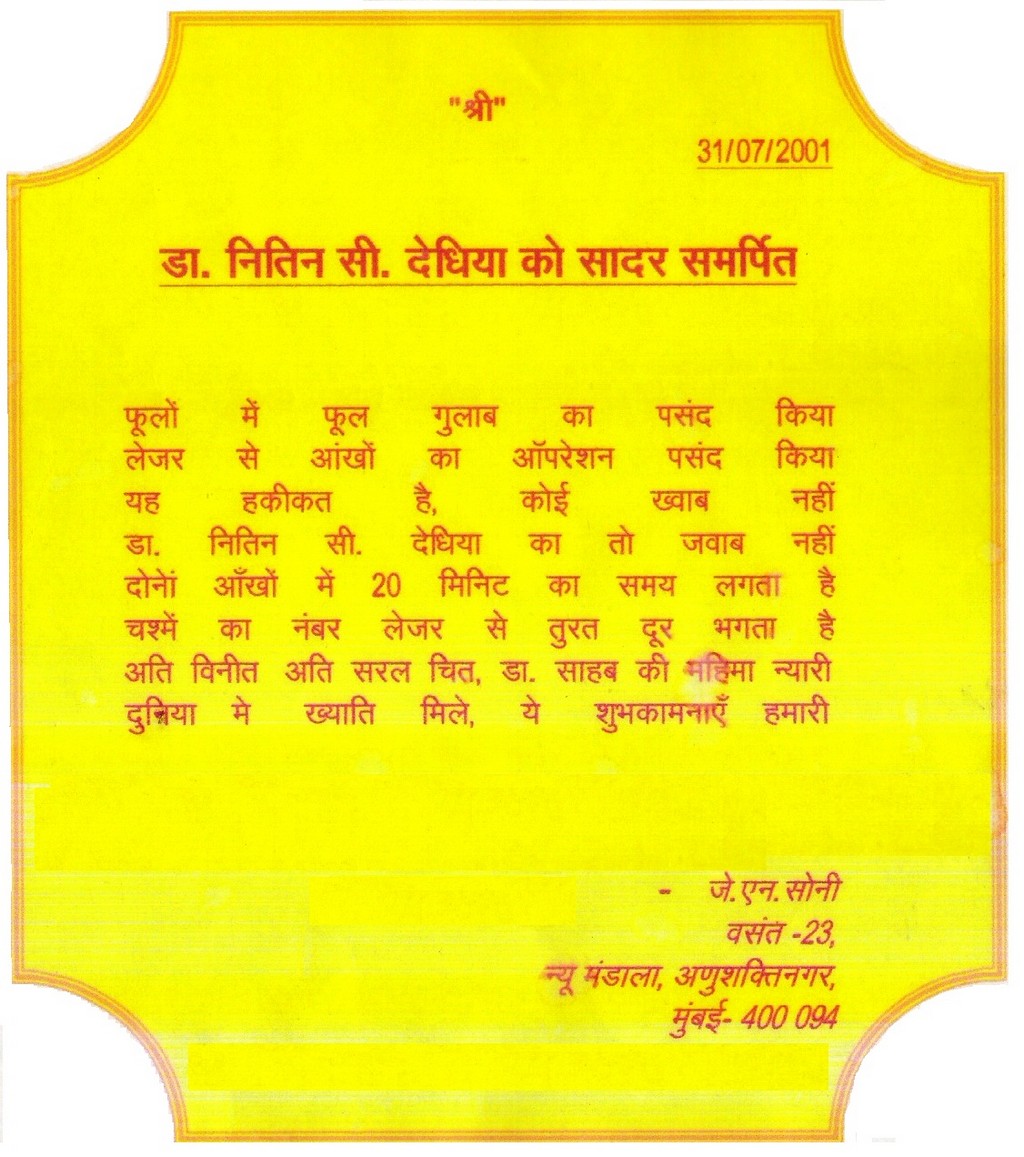 "श्री"
31/07/2001
डा. नितिन सी. देधिया को सादर समर्पित
फूलों में फूल गुलाब का पसंद किया
लेजर से आंखों का ऑपरेशन पसंद किया
यह हकीकत है, कोई ख्वाब नहीं
डा. नितिन सी. देधिया का तो जवाब नहीं
दोनेां आँखों में 20 मिनिट का समय लगता है
चश्में का नंबर लेजर से तुरत दूर भगता है
अति विनीत अति सरल चित, डा. साहब की महिमा न्यारी
दुनिया मे ख्याति मिले, ये शुभकामनाएँ हमारी
- जे.एन.सोनी
वसंत -23,
न्यू मंडाला, अणुशक्तिनगर,
मुंबई- 400 094